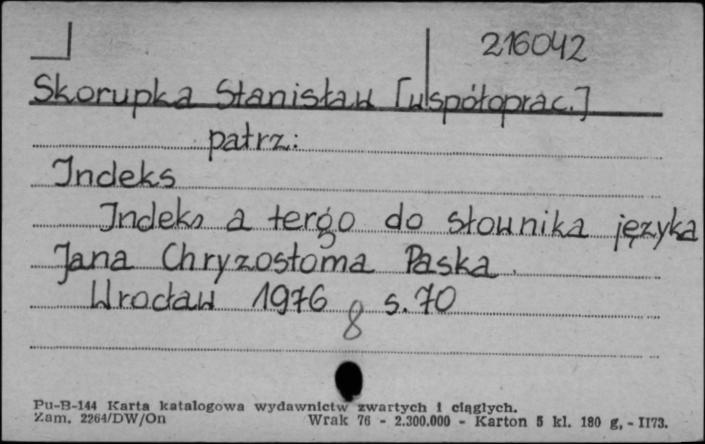 216042
Skorupka Stanisław [współoprac.]
patrz:
Indeks
Indeks a tergo do słownika języka
Jana Chryzostoma Paska.
Wrocław 1976 8 s. 70
Pu-B-144 Karta katalogowa wydawnictw zwartych i ciągłych.
Zam. 2264/DW/On Wrak 76 - 2.300.000 - Karton 5 kl. 180 g, - II73.